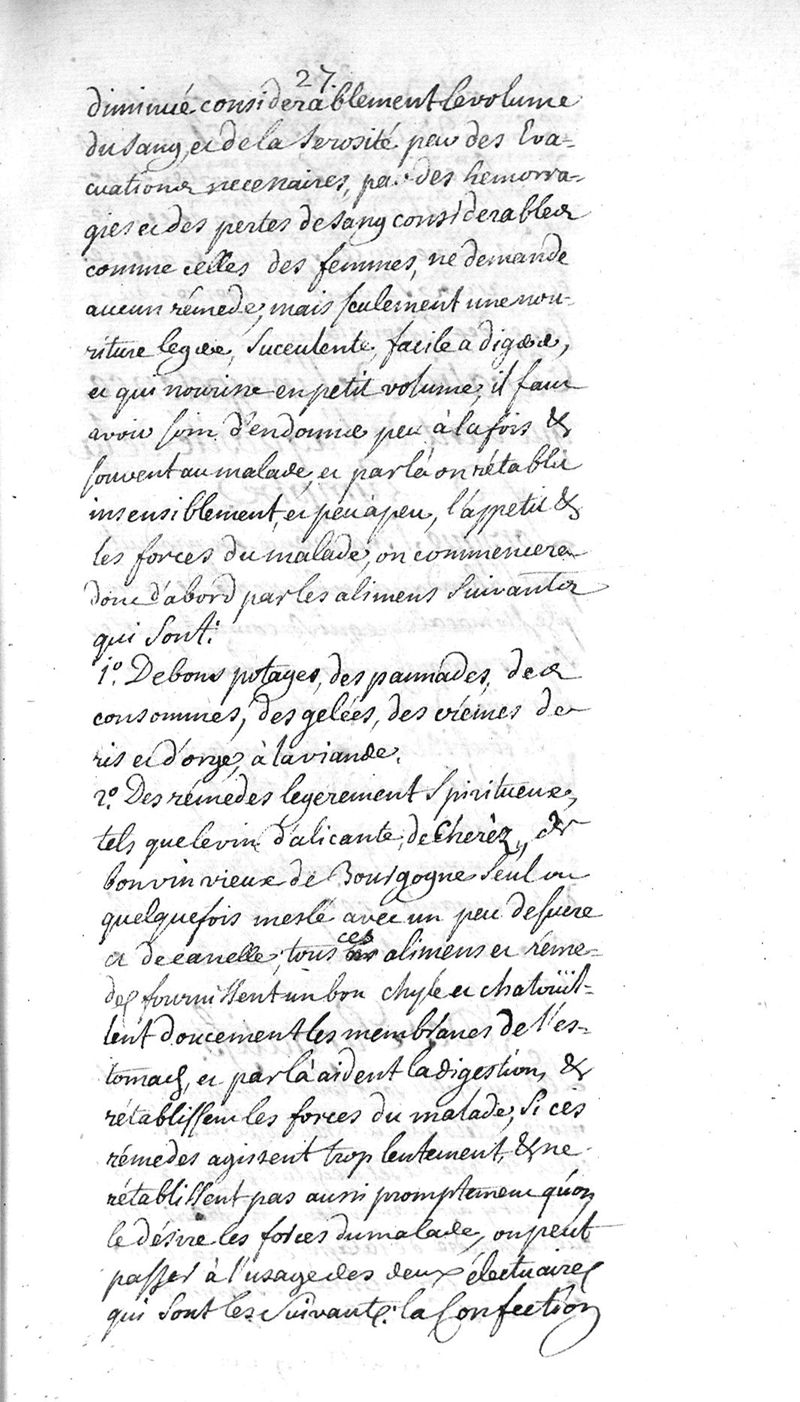 27.
diminué considerablement le volume
du sang, et de la serosité par des Eva-
cuations necessaires, par des hemorra-
gies et des pertes de sang considerables
comme celles des femmes, ne demande
aucun rémede, mais seulement une nou-
riture legere, succulente, facile a digerer,
et qui nourisse en petit volume, il faut
avoir soin d'en donner peu à la fois &
souvent au malade, et par là on rétablit
insensiblement, et peu à peu, l'appetit &
les forces du malade, on commencera
donc d'abord par les alimens suivants
qui sont:
1.° De bons potages, des pannades, des
consommés, des gelées, des crémes de
ris et d'orge, à la viande.
2.° Des rémedes legerement spiritueux,
tels que le vin d'alicante, de Chérèz, de
bon vin vieux de Bourgogne seul ou
quelquefois meslé avec un peu de sucre
et de canelle; tous ces alimens et réme-
des fournissent un bon chyle et chatoüil-
lent doucement les membranes de l'es-
tomach, et par là aident la digestion, &
rétablissent les forces du malade, si ces
rémedes agissent trop lentement, & ne
rétablissent pas aussi promptement qu'on
le désire les forces du malade, on peut
passer à l'usage des deux électuaires
qui sont les suivants: la Confection